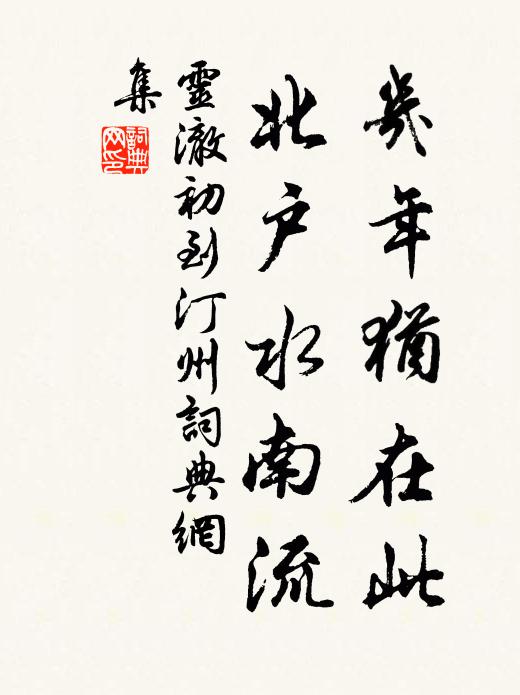 幾年猶在此
北户水南流
靈澈初到汀州詞典網
集
詞典網印